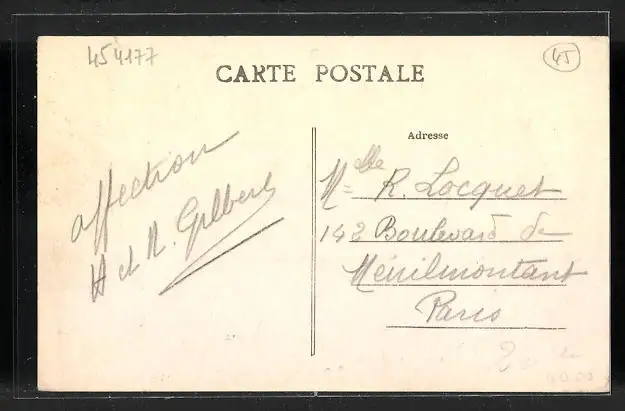 454177
45
CARTE POSTALE
Adresse
affection
H et M. Gilbert
Mlle R. Locquet
142 Boulevard de
Ménilmontant
Paris